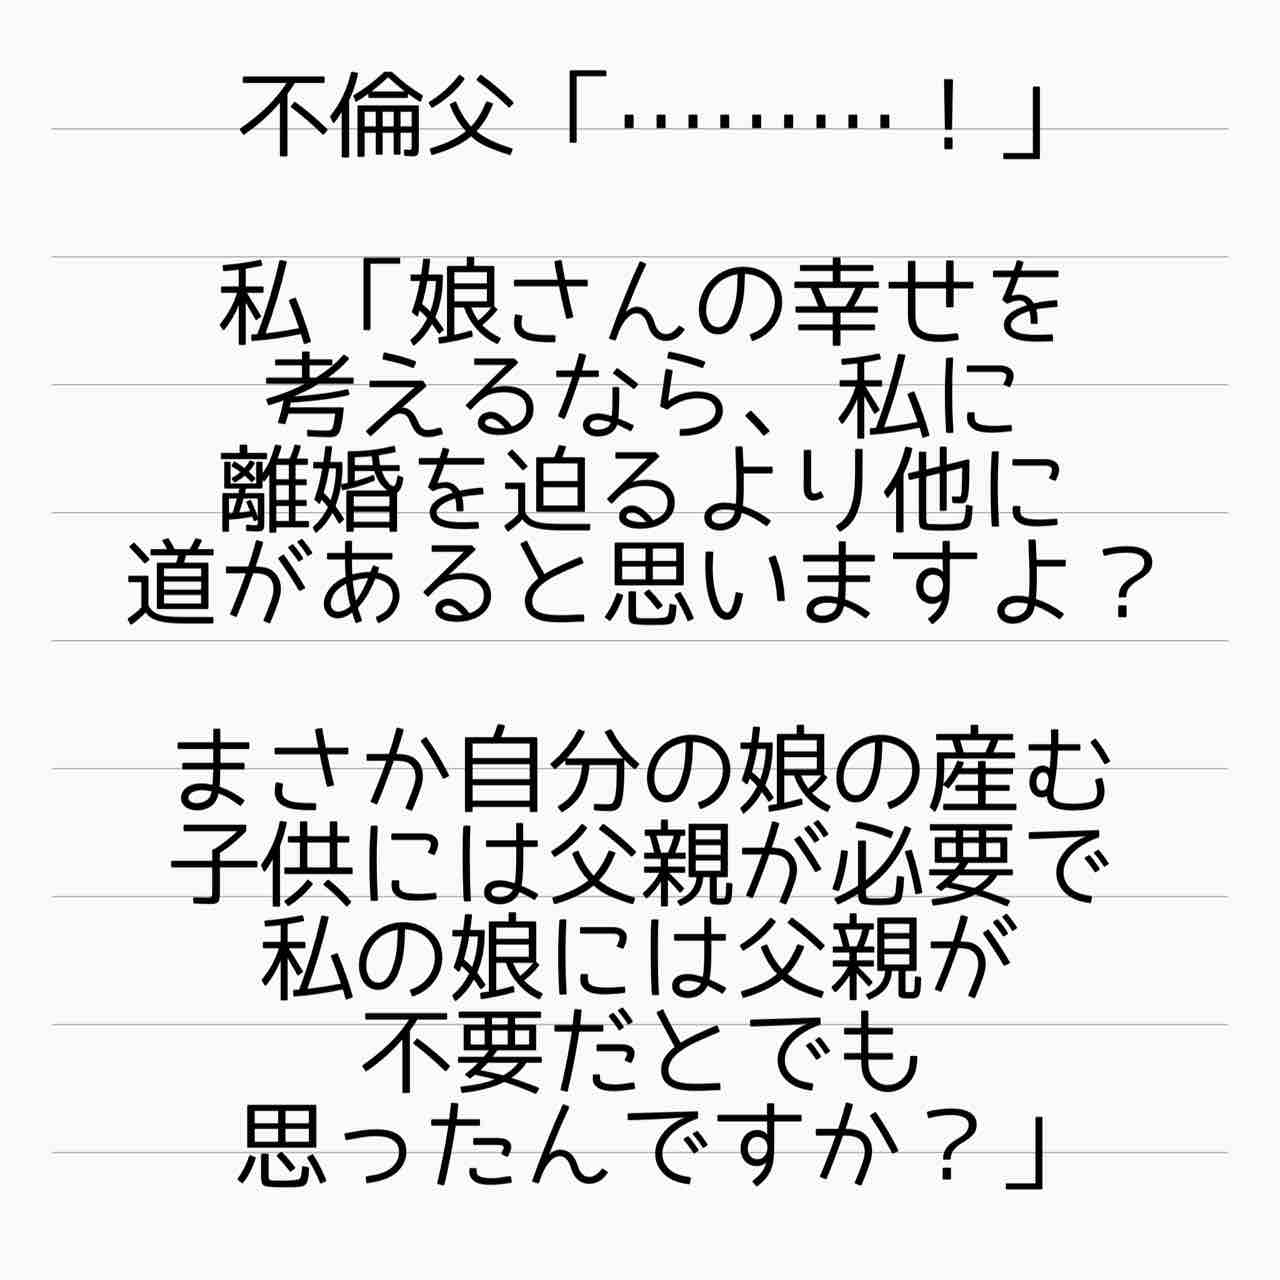 不倫父「………！」
私「娘さんの幸せを
考えるなら、私に
離婚を迫るより他に
道があると思いますよ？
まさか自分の娘の産む
子供には父親が必要で
私の娘には父親が
不要だとでも
思ったんですか？」